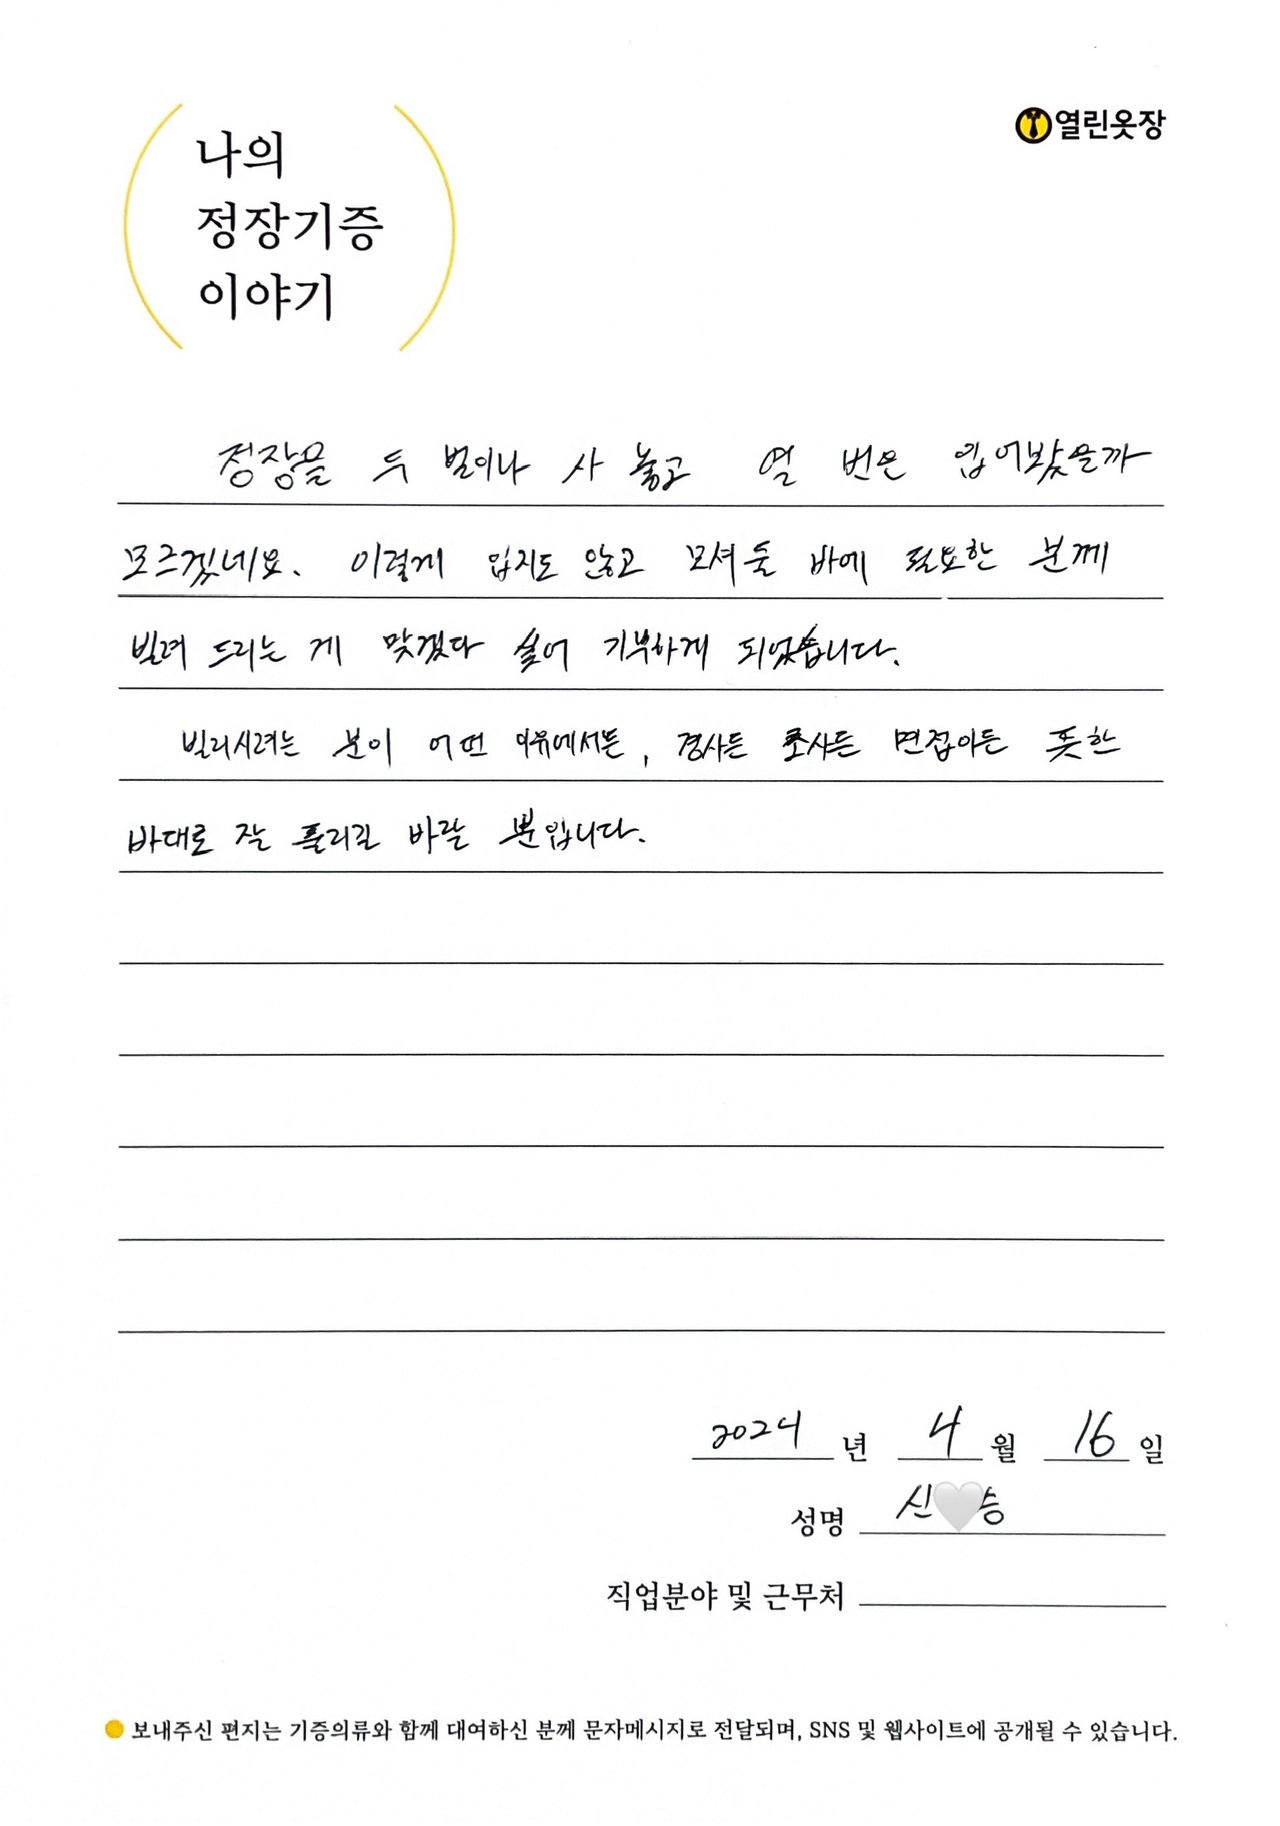 열린옷장
나의
정장기증
이야기
정장을 두 벌이나 사 놓고 열 번은 입어봤을까
모르겠네요. 이렇게 입지도 않고 모셔둘 바에 필요한 분께
빌려 드리는 게 맞겠다 싶어 기부하게 되었습니다.
빌리시려는 분이 어떤 이유에서든, 경사든 조사든 면접이든 뜻한
바대로 잘 풀리길 바랄 뿐입니다.
2024 년 4 월 16 일
성명 신🤍승
직업분야 및 근무처
보내주신 편지는 기증의류와 함께 대여하신 분께 문자메시지로 전달되며, SNS 및 웹사이트에 공개될 수 있습니다.